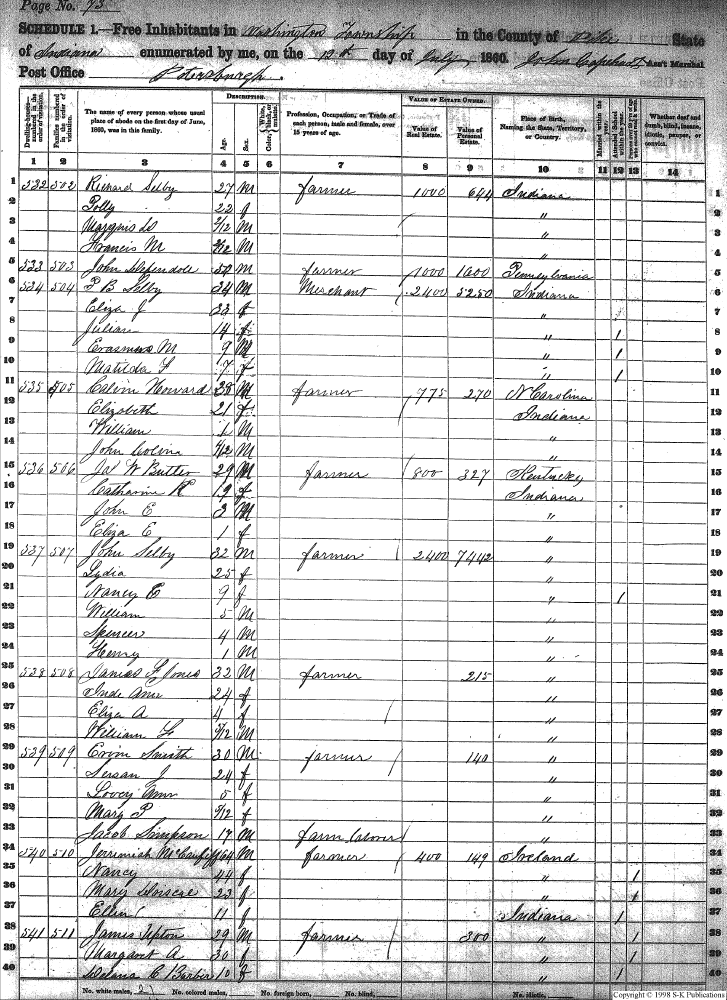 Page No. 93
SCHEDULE 1.—Free Inhabitants in Washington Township in the County of Pike State
of Indiana enumerated by me, on the 12th day of July, 1860. John Capehart Ass't Marshal
Post Office Petersburgh.
Dwelling-houses numbered in the order of visitation.
Families numbered in the order of visitation.
The name of every person whose usual place of abode on the first day of June, 1860, was in this family.
DESCRIPTION.
Age.
Sex.
Color, White, black, or mulatto.
Profession, Occupation, or Trade of each person, male and female, over 15 years of age.
VALUE OF ESTATE OWNED.
Value of Real Estate.
Value of Personal Estate.
Place of Birth, Naming the State, Territory, or Country.
Married within the year.
Attended School within the year.
Whether deaf and dumb, blind, insane, idiotic, pauper, or convict.
1 2 3 4 5 6 7 8 9 10 11 12 13 14
1 532 502 Richard Selby 27 M farmer 1000 644 Indiana 1
2 Polly 22 f " 2
3 M " 3
4 Francis M 2/12 M " 4
5 533 503 John 50 M farmer 1000 1000 Pennsylvania 5
6 534 504 P B Selby 34 M Merchant 2400 5250 Indiana 6
7 Eliza J 33 f " 7
8 Julian 14 f " / 8
9 Erasmus M 9 M " / 9
10 Matilda F 7 f " / 10
11 535 505 Calvin Howard 28 M farmer 775 270 N Carolina 11
12 Elizabeth 21 f Indiana 12
13 William 1 M " 13
14 John M " 14
15 536 506 Jas W Butler 29 M farmer 800 327 Kentucky 15
16 Catharine R 19 f Indiana 16
17 John E 3 M " 17
18 Eliza E 1 f " 18
19 537 507 John Selby 32 M farmer 2400 7442 " 19
20 Lydia 25 f " 20
21 Nancy E 9 f " / 21
22 William 5 M " 22
23 Spencer 4 M " 23
24 Henry 1 M " 24
25 538 508 James F Jones 32 M farmer 215 " 25
26 Ann 24 f " 26
27 Eliza A 4 f " 27
28 William F M " 28
29 539 509 Smith 30 M farmer 140 " 29
30 J 24 f " 30
31 Lovey Ann 5 f " 31
32 Mary P f " 32
33 Jacob Simpson 17 M farm laborer " 33
34 540 510 Jeremiah 64 M farmer 400 149 Ireland 34
35 Nancy 44 f " / 35
36 Mary 23 f " / 36
37 Ellen 11 f Indiana / 37
38 541 511 James Tipton 29 M farmer 300 " / 38
39 Margaret A 30 f " / 39
40 C Barber 10 f " / 40
No. white males, No. colored males, No. foreign born, No. blind, No. idiotic,
Copyright © 1998 S-K Publications